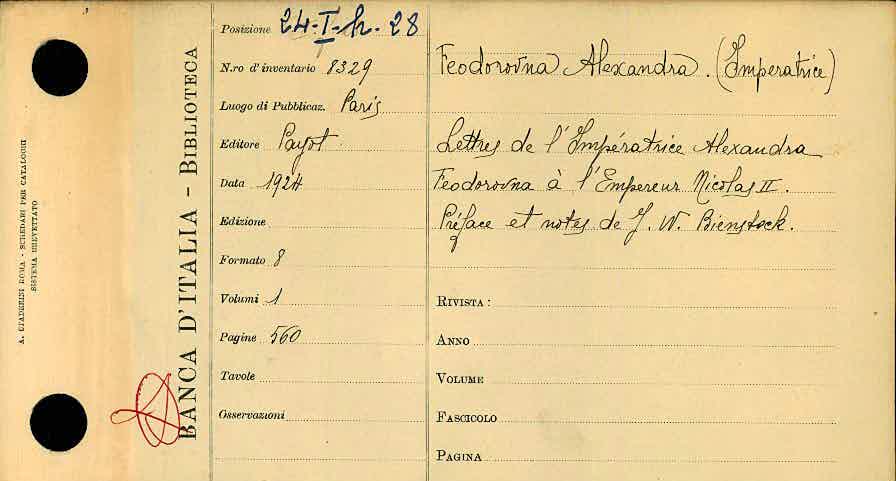 A. STADERINI ROMA - SCHEDARI PER CATALOGHI
SISTEMA BREVETTATO
BANCA D'ITALIA - BIBLIOTECA
Posizione 24-I-h-28
N.ro d'inventario 8329
Luogo di Pubblicaz. Paris
Editore Payot
Data 1924
Edizione
Formato 8
Volumi 1
Pagine 560
Tavole
Osservazioni
Feodorovna Alexandra. (Imperatrice)
Lettres de l'Impératrice Alexandra
Feodorovna à l'Empereur Nicolas II.
Préface et notes de J. W. Bienstock.
RIVISTA:
ANNO
VOLUME
FASCICOLO
PAGINA